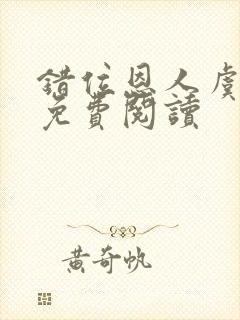 錯位恩人虞
免費閱讀
黃奇帆